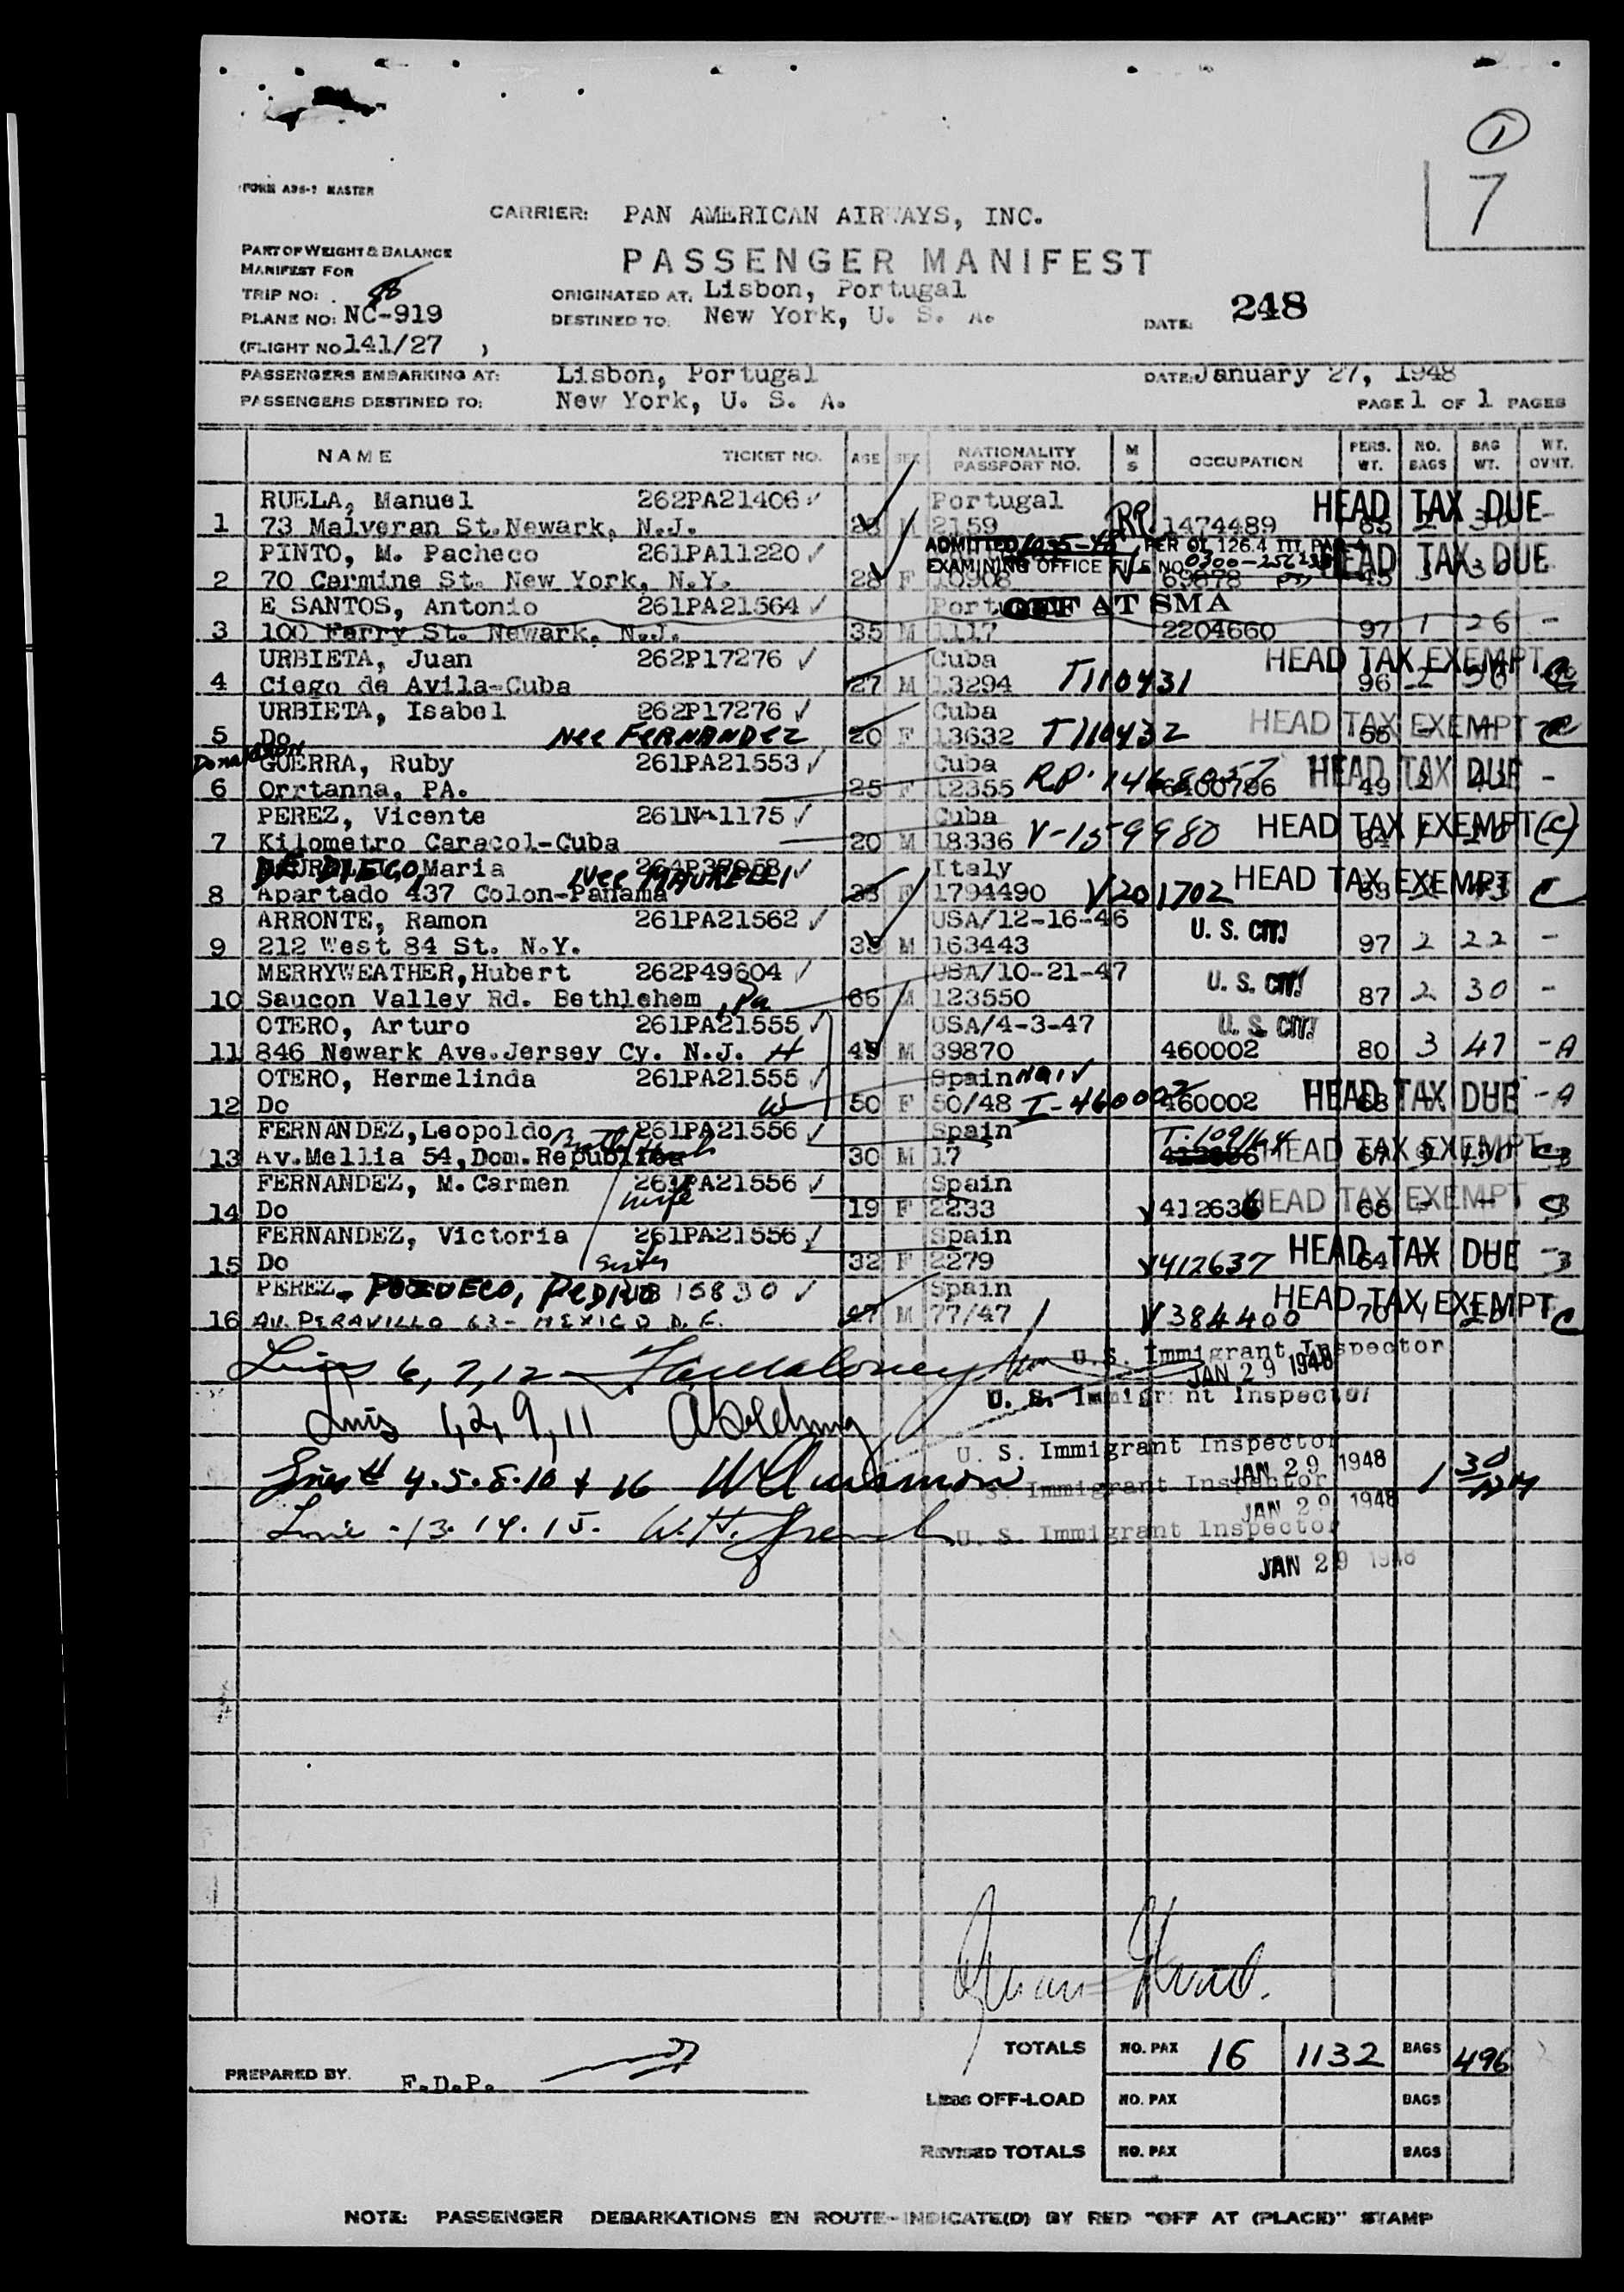 1
7
FORM A35-2 MASTER
CARRIER: PAN AMERICAN AIRWAYS, INC.
PART OF WEIGHT & BALANCE
MANIFEST FOR
PASSENGER MANIFEST
TRIP NO:
ORIGINATED AT: Lisbon, Portugal
PLANE NO: NC-919
DESTINED TO: New York, U. S. A.
DATE: 248
(FLIGHT NO 141/27 )
PASSENGERS EMBARKING AT: Lisbon, Portugal DATE: January 27, 1948
PASSENGERS DESTINED TO: New York, U. S. A. PAGE 1 OF 1 PAGES
NAME TICKET NO. AGE SEX NATIONALITY PASSPORT NO. M S OCCUPATION PERS. WT. NO. BAGS BAG WT. WT. OVNT.
RUELA, Manuel 262PA21406 Portugal HEAD TAX DUE
1 73 Malveran St.Newark, N.J. M 2159 RP. 1474489
PINTO, M. Pacheco 261PA11220 ADMITTED PER OI 126.4 HEAD TAX DUE
EXAMINING OFFICE FILE NO
2 70 Carmine St. New York, N.Y. 28 F 10908 69878 45
E SANTOS, Antonio 261PA21564 OFF AT SMA
3 100 Ferry St. Newark, N.J. 35 M 1117 2204660 97 1 26 -
URBIETA, Juan 262P17276 Cuba HEAD TAX EXEMPT
4 Ciego de Avila-Cuba 27 M 13294 T110431 96 2
URBIETA, Isabel 262P17276 Cuba HEAD TAX EXEMPT
5 Do nee FERNANDEZ 20 F 13632 T110432
GUERRA, Ruby 261PA21553 Cuba HEAD TAX DUE
6 Orrtanna, PA. 25 F 12355 RP. 6400796 49 -
PEREZ, Vicente 261NA1175 Cuba HEAD TAX EXEMPT (C)
7 Kilometro Caracol-Cuba 20 M 18336 V-159980 64
DE DIEGO, Maria nee MAURELLI Italy HEAD TAX EXEMPT
8 Apartado 437 Colon-Panama F 1794490 V201702 C
ARRONTE, Ramon 261PA21562 USA/12-16-46 U. S. CIT.
9 212 West 84 St. N.Y. M 163443 97 2 22 -
MERRYWEATHER, Hubert 262P49604 USA/10-21-47 U. S. CIT.
10 Saucon Valley Rd. Bethlehem, Pa 66 M 123550 87 2 30 -
OTERO, Arturo 261PA21555 USA/4-3-47 U. S. CIT.
11 846 Newark Ave.Jersey Cy. N.J. H M 39870 460002 80 3 47 -A
OTERO, Hermelinda 261PA21555 Spain HEAD TAX DUE -A
12 Do W 50 F 50/48 I-460002 460002
FERNANDEZ, Leopoldo 261PA21556 Spain HEAD TAX EXEMPT
13 Av.Mellia 54, Dom.Republica 30 M 17
FERNANDEZ, M. Carmen 261PA21556 Spain HEAD TAX EXEMPT
14 Do wife 19 F 2233 V412636
FERNANDEZ, Victoria 261PA21556 Spain HEAD TAX DUE
15 Do sister 32 F 2279 V412637 64
PEREZ- POZUECO, PEDRO 15830 Spain HEAD TAX EXEMPT
16 AV. PERAVILLO 63- MEXICO D.F. 47 M 77/47 V384400 C
Lines 6, 7, 12 U.S. Immigrant Inspector
JAN 29 1948
Lines 1, 2, 9, 11 U. S. Immigrant Inspector
U. S. Immigrant Inspector
JAN 29 1948
Lines # 4.5.8.10 & 16 U. S. Immigrant Inspector
JAN 29 1948
Line - 13. 14. 15. W.H. French U. S. Immigrant Inspector
JAN 29 1948
TOTALS NO. PAX 16 1132 BAGS 496
PREPARED BY. F.D.P.
LESS OFF-LOAD NO. PAX BAGS
REVISED TOTALS NO. PAX BAGS
NOTE: PASSENGER DEBARKATIONS EN ROUTE-INDICATE(D) BY RED "OFF AT (PLACE)" STAMP